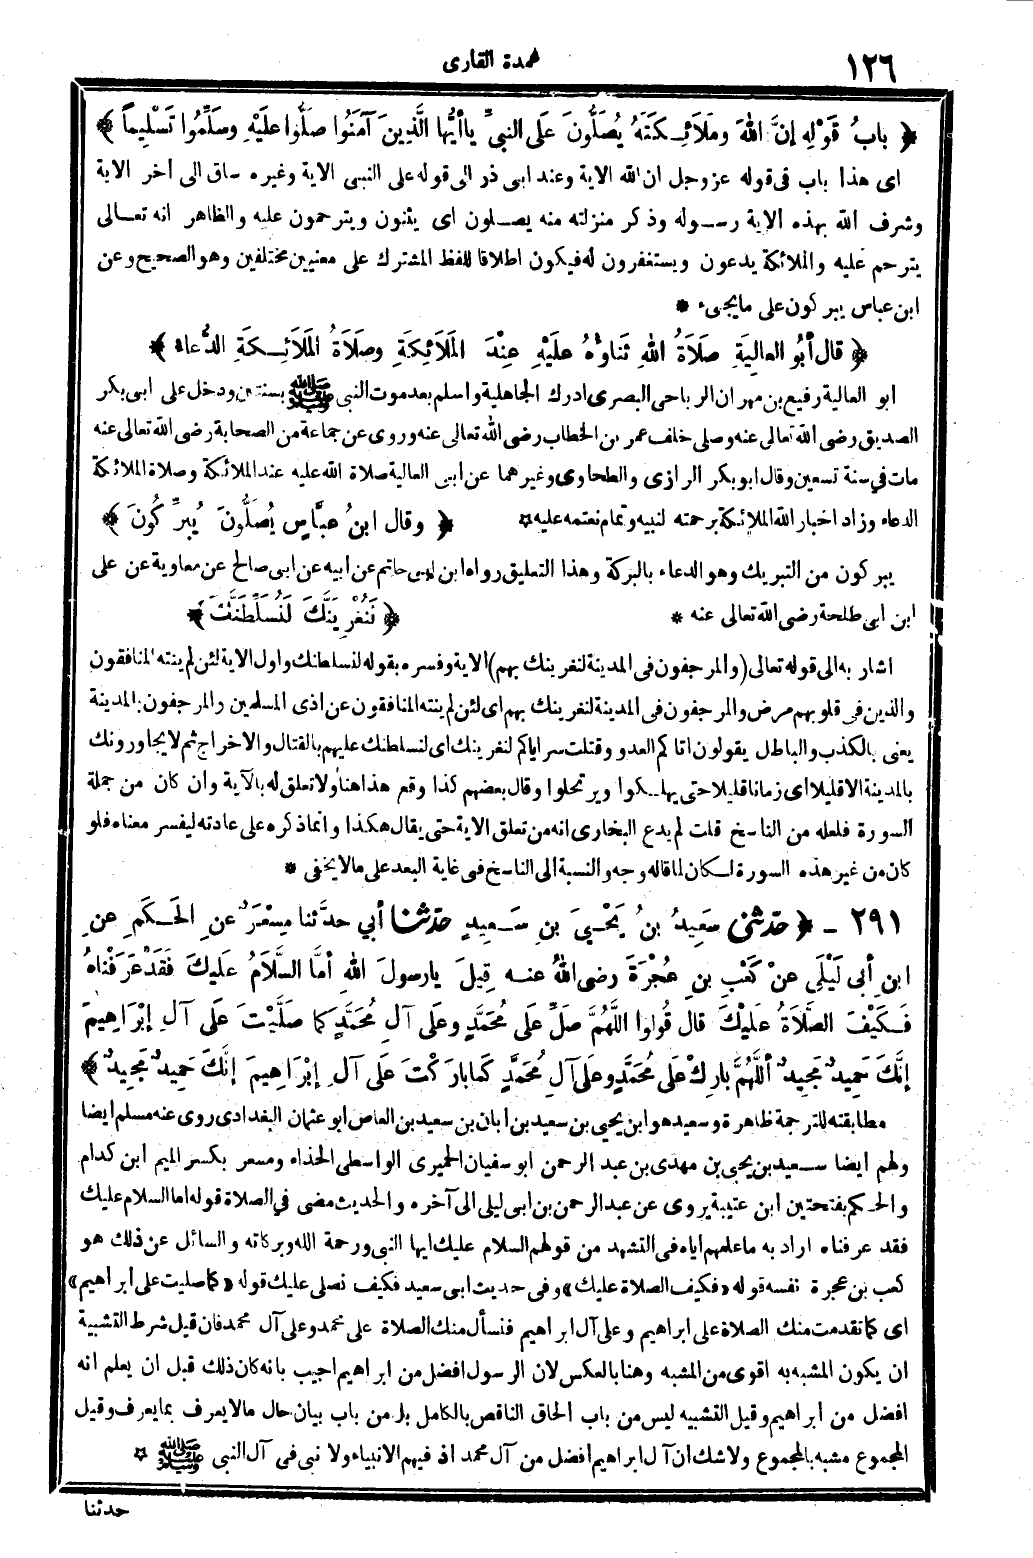 ١٢٦
عمدة القارى
﴿ بابُ قَوْلِهِ إنَّ اللهَ ومَلَائِـكَتَهُ يُصَلُّونَ عَلَى النبيِّ ياأيُّها الَّذِينَ آمَنُوا صَلُّوا عَلَيْهِ وسَلِّمُوا تَسْلِيماً ﴾
اى هذا باب فى قوله عز وجل ان الله الاية وعند ابى ذر الى قوله على النبى الاية وغيره ساق الى أخر الاية
وشرف الله بهذه الاية رسـوله وذكر منزلته منه يصـلون اى يثنون ويترحمون عليه والظاهر انه تعـالى
يترحم عليه والملائكة يدعون ويستغفرون له فيكون اطلاقا للفظ المشترك على معنيين مختلفين وهو الصحيح وعن
ابن عباس يبركون على مايجىء *
﴿ قال أبُو العالِيَةِ صَلَاةُ اللهِ ثَناؤُهُ عَلَيْهِ عِنْدَ المَلَائِكَةِ وصَلَاةُ المَلَائِـكَةِ الدُّعاء ﴾
ابو العالية رفيع بن مهران الرياحى البصرى ادرك الجاهلية واسلم بعد موت النبى ﷺ بسنتين ودخل على ابى بكر
الصديق رضى الله تعالى عنه وصلى خلف عمر بن الخطاب رضى الله تعالى عنه وروى عن جماعة من الصحابة رضى الله تعالى عنه
مات في سنة تسعين وقال ابو بكر الرازى والطحاوى وغيرهما عن ابى العالية صلاة الله عليه عند الملائكة وصلاة الملائكة
الدعاء وزاد اخبار الله الملائكة برحمته لنبيه وتمام نعتمه عليه * ﴿ وقال ابنُ عبَّاسٍ يُصَلُّونَ يُبَرِّكُونَ ﴾
يبركون من التبريك وهو الدعاء بالبركة وهذا التعليق رواه ابن ابى حاتم عن ابيه عن ابى صالح عن معاوية عن على
ابن ابى طلحة رضى الله تعالى عنه * ﴿ لَنُغْرِيَنَّكَ لَنُسَلِّطَنَّكَ ﴾
اشار به الى قوله تعالى (والمرجفون فى المدينة لنغرينك بهم) الاية وفسره بقوله لنسلطنك واول الاية لئن لم ينته المنافقون
والذين فى قلوبهم مرض والمرجفون فى المدينة لنغرينك بهم اى لئن لم ينته المنافقون عن اذى المسلمين والمرجفون بالمدينة
يعنى بالكذب والباطل يقولون اتاكم العدو وقتلت سراياكم لنغرينك اى لنسلطنك عليهم بالقتال والاخراج ثم لايجاورونك
بالمدينة الا قليلا اى زمانا قليلا حتى يهلكوا ويرتحلوا وقال بعضهم كذا وقع هذا هنا ولا تعلق له بالآية وان كان من جملة
السورة فلعله من الناسخ قلت لم يدع البخارى انه من تعلق الاية حتى يقال هكذا وانما ذكره على عادته ليفسر معناه فلو
كان من غير هذه السورة لـكان لما قاله وجه والنسبة الى الناسخ فى غاية البعد على مالا يخفى *
٢٩١ ـ ﴿ حدّثنى سَعِيدُ بنُ يَحْيىَ بنِ سَـعِيدٍ حدّثنا أبي حدَّثنا مِسْعَرٌ عنِ الحَـكَمِ عنِ
ابنِ أبى لَيْلَى عنْ كَعْبِ بنِ عُجْرَةَ رضى اللهُ عنـه قِيلَ يارسولَ اللهِ أمَّا السَّلَامُ عَلَيْكَ فَقَدْ عَرَفْناهُ
فَـكَيْفَ الصَّلَاةُ عَلَيْكَ قال قُولُوا اللَّهُمَّ صَلِّ عَلَى مُحَمَّدٍ وعَلَى آلِ مُحَمَّدٍ كما صَلَّيْتَ عَلَى آلِ إبْرَاهِيمَ
إنَّكَ حَمِيدٌ مَجِيدٌ أللَّهُمَّ بارِكْ عَلَى مُحَمَّدٍ وعَلَى آلِ مُحَمَّدٍ كَمَا بارَكْتَ عَلَى آلِ إبْرَاهِيمَ إنَّكَ حَمِيدٌ مَجِيدٌ ﴾
مطابقته للترجمة ظاهرة وسعيد هو ابن يحيى بن سعيد بن ابان بن سعيد بن العاص ابو عثمان البغدادى روى عنه مسلم ايضا
ولهم ايضا سـعيد بن يحيى بن مهدى بن عبد الرحمن ابو سفيان الحميرى الواسطى الحذاء ومسعر بكسر الميم ابن كدام
والحـكم بفتحتين ابن عتيبة يروى عن عبد الرحمن بن ابى ليلى الى آخره والحديث مضى في الصلاة قوله اما السلام عليك
فقد عرفناه اراد به ما علمهم اياه فى التشهد من قولهم السلام عليك ايها النبى ورحمة الله وبركاته والسائل عن ذلك هو
كعب بن عجرة نفسه قوله «فكيف الصلاة عليك» وفى حديث ابى سعيد فكيف نصلى عليك قوله «كما صليت على ابراهيم»
اى كما تقدمت منك الصلاة على ابراهيم وعلى آل ابراهيم فنسأل منك الصلاة على محمد وعلى آل محمد فان قيل شرط التشبية
ان يكون المشبه به اقوى من المشبه وهنا بالعكس لان الرسول افضل من ابراهيم اجيب بانه كان ذلك قبل ان يعلم انه
افضل من ابراهيم وقيل التشبيه ليس من باب الحاق الناقص بالكامل بل من باب بيان حال مالا يعرف بما يعرف وقيل
المجموع مشبه بالمجموع ولا شك ان آل ابراهيم افضل من آل محمد اذ فيهم الانبياء ولا نبى فى آل النبى ﷺ *
حدثنا